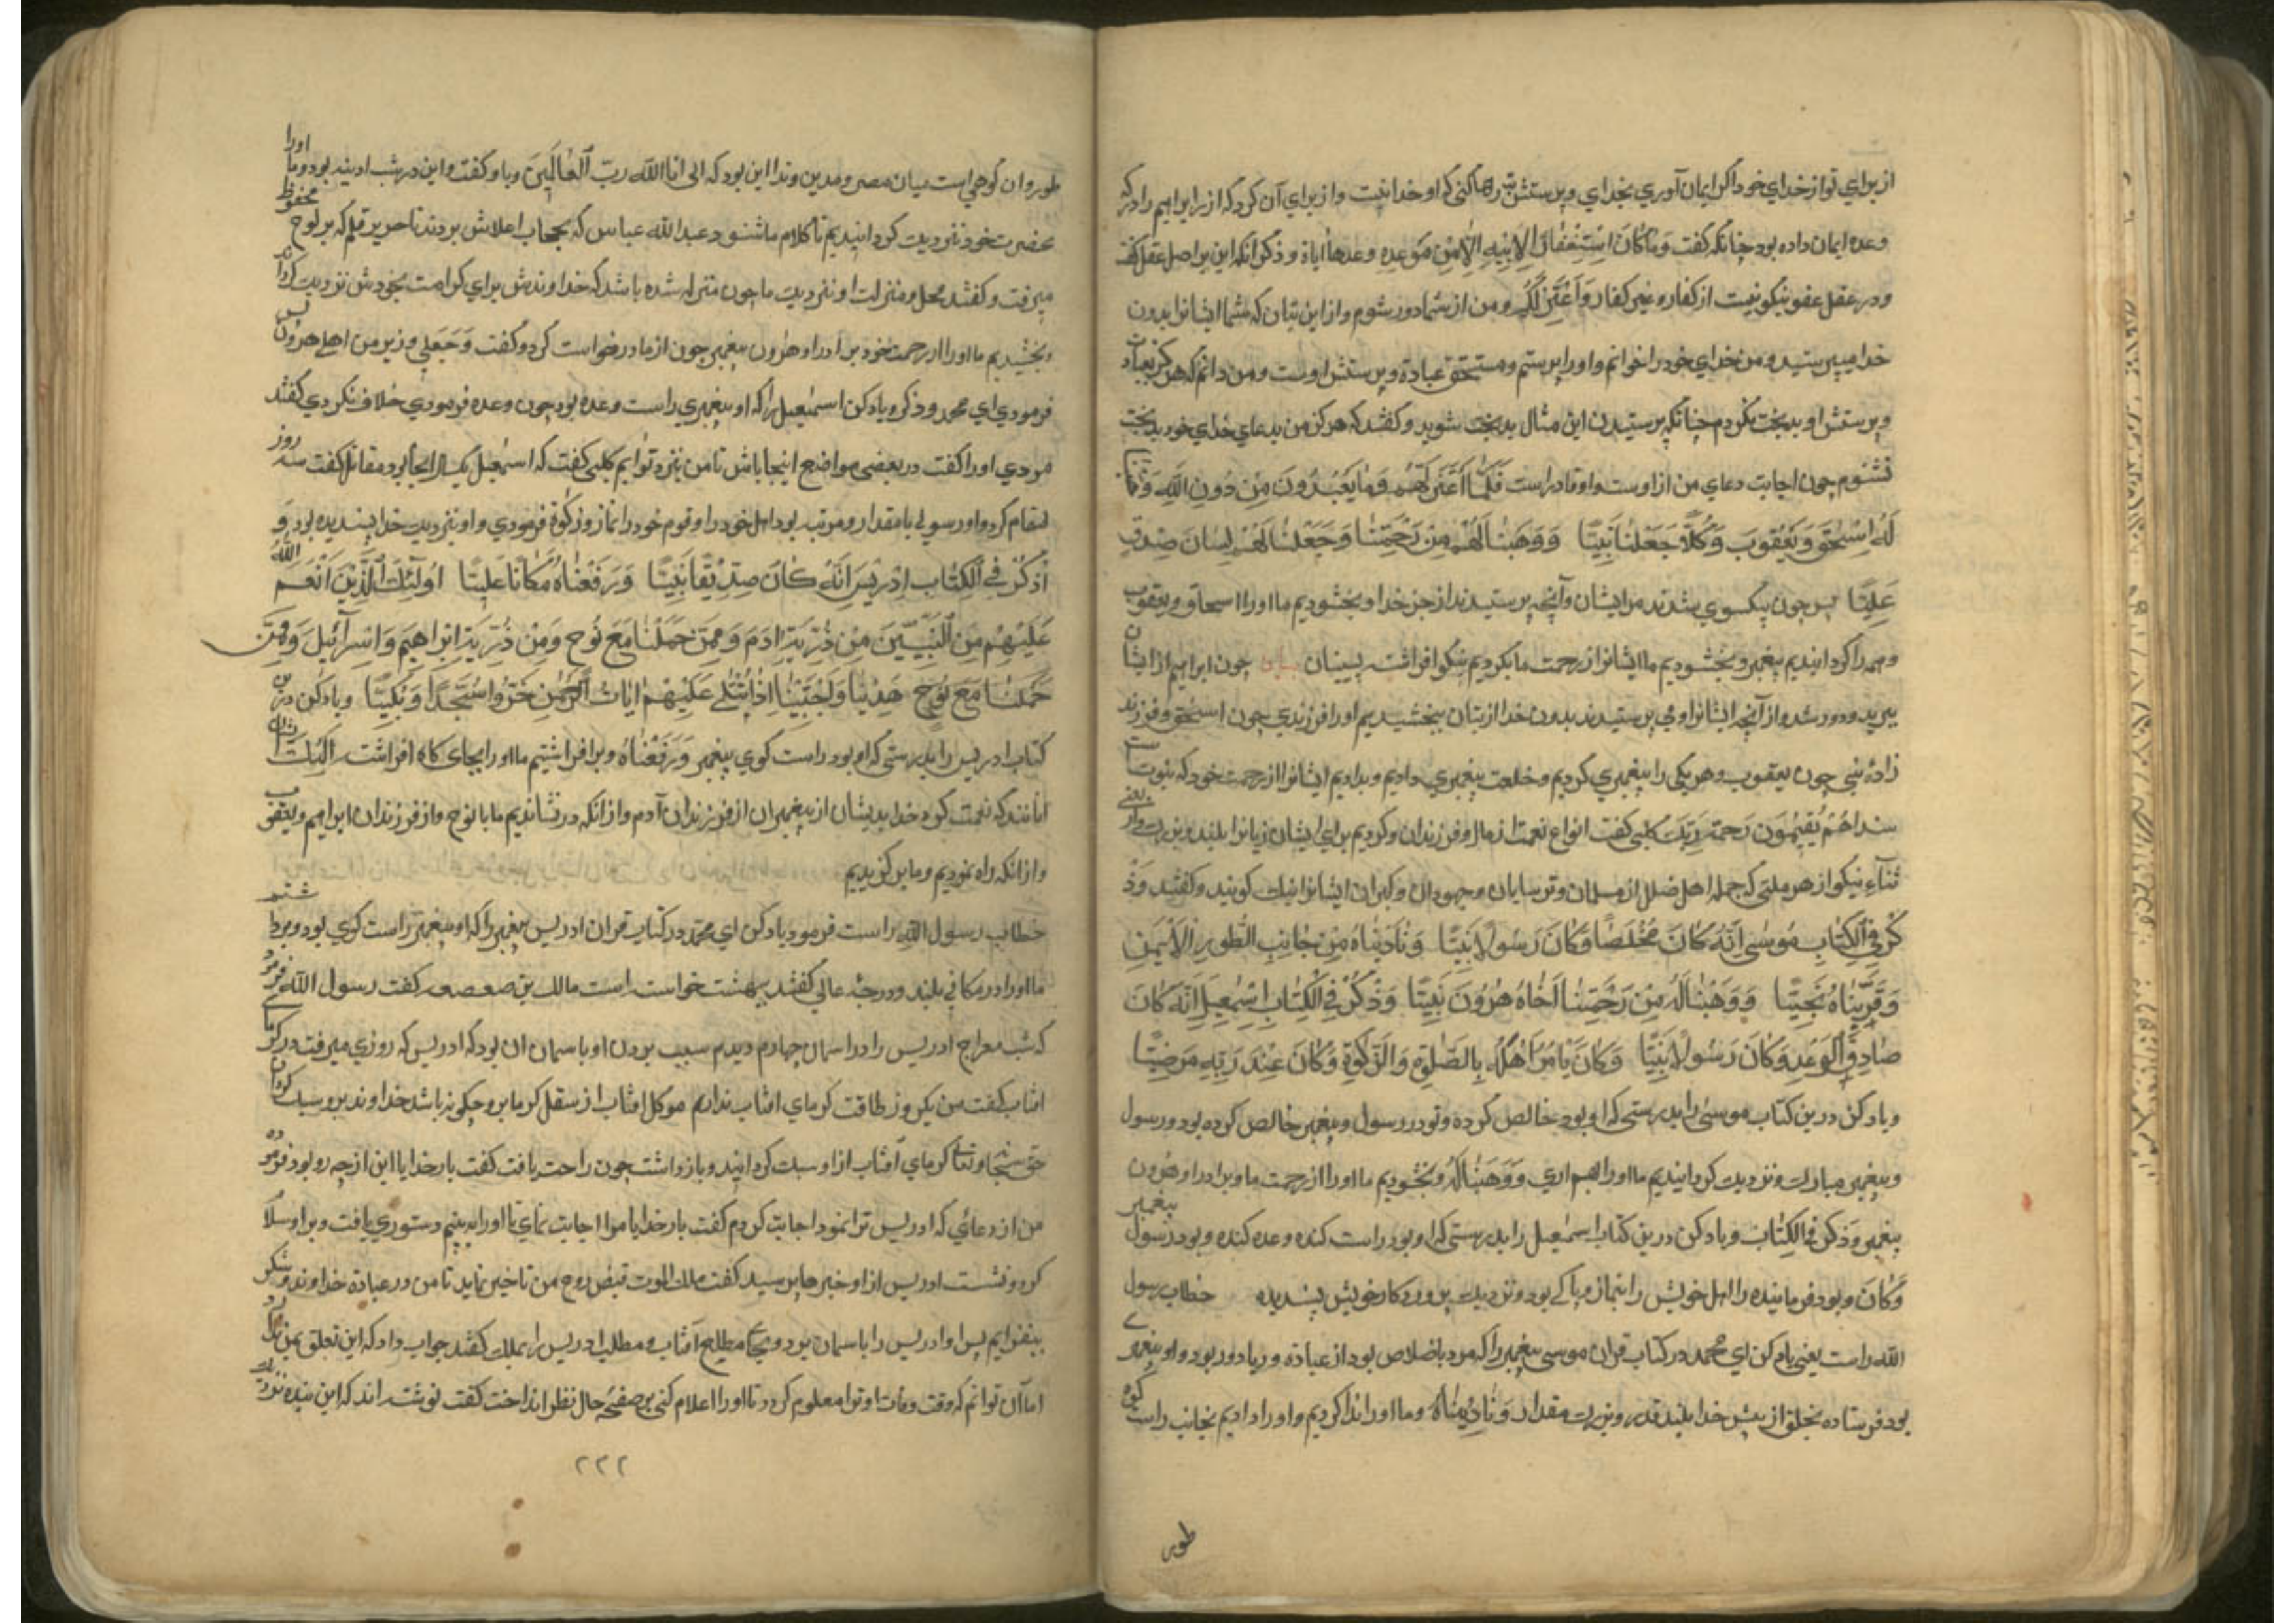 از برای تو از خدای خود اگر ایمان آوری بخدای و پرستش بت رها کنی که او خدا نیست و از برای آن کرد که ازر ابراهیم را دکر
وعده ایمان داده بود چنانکه گفت وَمَا كَانَ اسْتِغْفَارُ لِابِيهِ اِلَّا مِنْ مَوْعِدَةٍ وعدها اياة و ذکر آنکه این بر اصل عقل گفت
و در عقل عفو نیکو نیست از کفار و غیر کفار وَاَعْتَزِلُكُمْ و من از شما دور شوم و از این بتان که شما ایشانرا بدون
خدا میپرستید و من خدای خود را خوانم و او را پرستم و مستحق عبادة و پرستش اوست و من دانم که هرکز بعبادت
و پرستش او بدبخت نکردم چنانکه پرستیدن این مثال بدبخت شوید و گفتند که هرکز من بدعای خدای خود بدبخت
نشوم چون اجابت دعای من از اوست و او قادر است فَلَمَّا اعْتَزَلَهُمْ وَمَا يَعْبُدُونَ مِنْ دُونِ اللَّهِ وَهَبْنَا
لَهُ اِسْحٰقَ وَيَعْقُوبَ وَكُلًّا جَعَلْنَا نَبِيًّا وَوَهَبْنَا لَهُمْ مِنْ رَحْمَتِنَا وَجَعَلْنَا لَهُمْ لِسَانَ صِدْقٍ
عَلِيًّا پس چون یکسوی شدند مر ایشان و آنچه پرستیدند از جز خدا و بخشودیم ما او را اسحاق و یعقوب
و همه را کردانیدیم پیغمبر و بخشودیم ما ایشانرا از رحمت ما بکردیم نیکو افراشته چون ابراهیم از ایشان
ببرید و دور شد و از آنچه ایشانرا و می پرستیدند بدون خدا از بتان ببخشیدیم او را فرزندی چون اسحق و فرزند
زادهٔ نبی چون یعقوب و هر یکی را پیغمبری کردیم و خلعت پیغمبری دادیم و بدادیم ایشانرا از رحمت خود که نبوتست
رَحْمَتَ رَبِّكَ کلبی گفت انواع نعمت از مال و فرزندان و کردیم برای ایشان زبانرا بلند و بزرک یعنی
ثناء نیکو از هر ملتی که جمله اهل ملل از مسلمان و ترسایان و جهودان و کبران ایشانرا نیک کویند و گفتند وَذْ
كُرْ فِي الْكِتَابِ مُوسٰى اِنَّهُ كَانَ مُخْلَصًا وَكَانَ رَسُولًا نَبِيًّا وَنَادَيْنَاهُ مِنْ جَانِبِ الطُّورِ الْاَيْمَنِ
وَقَرَّبْنَاهُ نَجِيًّا وَوَهَبْنَا لَهُ مِنْ رَحْمَتِنَا اَخَاهُ هٰرُونَ نَبِيًّا وَذْكُرْ فِي الْكِتَابِ اِسْمٰعِيلَ اِنَّهُ كَانَ
صَادِقَ الْوَعْدِ وَكَانَ رَسُولًا نَبِيًّا وَكَانَ يَاْمُرُ اَهْلَهُ بِالصَّلٰوةِ وَالزَّكٰوةِ وَكَانَ عِنْدَ رَبِّهِ مَرْضِيًّا
و یاد کن درین کتاب موسی را بدرستی که او بود خالص کرده و تو در رسول و پیغمبر خالص کرده بود و رسول
و پیغمبر مبارک و نزدیک کردانیدیم ما او را وَوَهَبْنَا لَهُ و بخشودیم ما او را از رحمت ما و برادر او هرون
پیغمبر وَذْكُرْ فِي الْكِتَابِ و یاد کن درین کتاب اسمعیل را بدرستی که او بود راست کننده وعده کننده و بود رسول پیغمبر
وَكَانَ و بود فرماینده را اهل خویش را بنماز و پاکی بود و نزدیک پروردکار خویش پسندیده خطاب رسول
الله راست یعنی یاد کن ای محمد در کتاب قران موسی پیغمبر را که مرد باخلاص بود از عبادة و ریا دور بود و او پیغمبری
بود فرستاده بخلق از پیش خدا بلند قدر و بزرک مقدار وَنَادَيْنَاهُ و ما او را ندا کردیم و او را دادیم بجانب راست کوه
طور
طور و ان کوهی است میان مصر و مدین و ندا این بود که انی انا الله رَبُّ الْعَالَمِينَ و با و گفت و این در شب ادینه بود و ما او را
بحضرت خود نزدیک کردانیدیم تا کلام ما شنود عبد الله عباس که بحجاب اعلاش بردند تا صریر قلم که بر لوح محفوظ
میرفت و گفتند محل و منزلت او نزدیک ما چون منزله شده باشد که خداوندش برای کرامت بخودش نزدیک کرداند
و بخشیدیم ما او را از رحمت خود برادر او هرون پیغمبر چون از ما درخواست کرد و گفت وَجَعَلِي وزیر من اهلی هرون پس
فرمودی ای محمد و ذکر و یاد کن اسمعیل را که او پیغمبری راست وعده بود چون وعده فرمودی خلاف نکردی گفتند
مردی او را گفت در بعضی مواضع اینجا باش تا من نزد تو ایم کلبی گفت که اسمعیل یکسال انجا بود مقاتل گفت سه روز
مقام کرد و او رسولی با مقدار و مرتبه بود اهل خود را و قوم خود را نماز و زکوة فرمودی و او نزدیک خدا پسندیده بود وَ
اذْكُرْ فِي الْكِتَابِ اِدْرِيسَ اِنَّهُ كَانَ صِدِّيقًا نَبِيًّا وَرَفَعْنَاهُ مَكَانًا عَلِيًّا اُولٰئِكَ الَّذِينَ اَنْعَمَ اللّٰهُ
عَلَيْهِمْ مِنَ النَّبِيِّينَ مِنْ ذُرِّيَّةِ اٰدَمَ وَمِمَّنْ حَمَلْنَا مَعَ نُوحٍ وَمِنْ ذُرِّيَّةِ اِبْرَاهِيمَ وَاِسْرَآئِيلَ وَمِمَّنْ
حَمَلْنَا مَعَ نُوحٍ هَدَيْنَا وَاجْتَبَيْنَا اِذَا تُتْلٰى عَلَيْهِمْ اٰيَاتُ الرَّحْمٰنِ خَرُّوا سُجَّدًا وَبُكِيًّا و یاد کن درین
کتاب ادریس را بدرستی که او بود راست کوی پیغمبر وَرَفَعْنَاهُ و برافراشتیم ما او را بجای کاه افراشته
انانند که نعمت کرد خدا بدیشان از پیغمبران از فرزندان آدم و از انکه درنشاندیم ما با نوح و از فرزندان ابراهیم و یعقوب
و از انکه راه نمودیم و ما بر کزیدیم
خطاب رسول الله راست فرمود یاد کن ای محمد در کتاب قران ادریس پیغمبر را که او پیغمبر راست کوی بود و برداشتیم
ما او را در مکانی بلند و درجهٔ عالی گفتند بهشت خواست است مالک بن صعصعه گفت رسول الله فرمود
که شب معراج ادریس را در اسمان چهارم دیدم سبب بردن او باسمان ان بود که ادریس که روزی میرفت در کرمای
افتاب گفت من یکروز طاقت کرمای افتاب ندارم موکل افتاب از ثقل کرما بر و چکونه باشد خداوند برو سبک کردان
حق سبحانه و تعالی کرمای آفتاب از او سبک کردانید و باز داشت چون راحت یافت گفت بار خدایا این از چه رو بود فرموده
من از دعائی که ادریس ترا نمود اجابت کردم گفت بار خدایا مرا اجابت نمای تا او را به بینم دستوری یافت و بر او سلام
کرد و نشست ادریس از او خبرها پرسید گفت ملک الموت قبض روح من تاخیر نماید تا من در عبادة خداوند و شکر
بیفزایم پس او ادریس را باسمان برد و بجای مطلع آفتاب و مطلب ادریس را بملک گفتند جواب داد که این تعلق بمن ندارد
اما آن توانم که وقت وفات او ترا معلوم کردد تا او را اعلام کنی بر صفحهٔ حال نظر انداخت گفت نوشته اند که این بنده نزدیک
۲۲۲